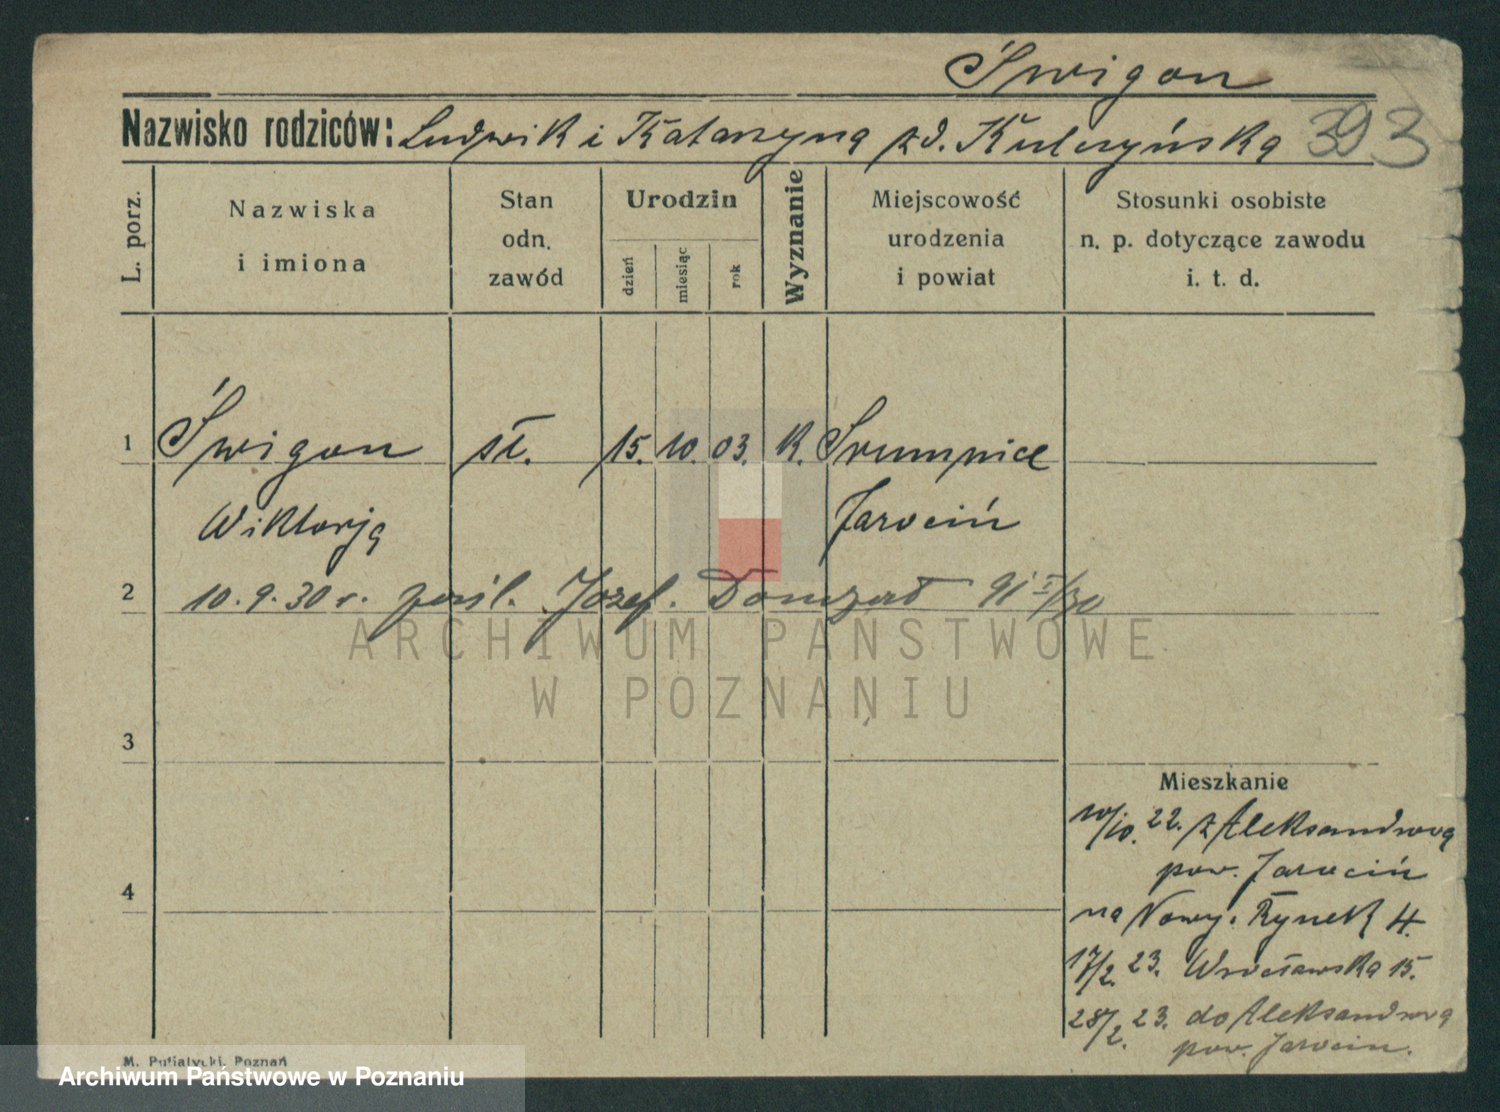 Świgon
Nazwisko rodziców: Ludwik i Katarzyna zd. Kulczyńska 393
L. porz.
Nazwiska i imiona
Stan odn. zawód
Urodzin
dzień
miesiąc
rok
Wyznanie
Miejscowość urodzenia i powiat
Stosunki osobiste n. p. dotyczące zawodu i. t. d.
1 Świgon sł. 15. 10. 03. K.
Wiktorja Jarocin
2 10.9.30 r. pośl. Józef. 
3
Mieszkanie
10/10. 22. z Aleksandrowa
pow. Jarocin
4
na Nowy. Rynek 4.
17/2. 23. Wrocławska 15.
28/2. 23. do Aleksandrowa
pow. Jarocin.
M. Putiatycki, Poznań
ARCHIWUM PAŃSTWOWE
W POZNANIU
Archiwum Państwowe w Poznaniu